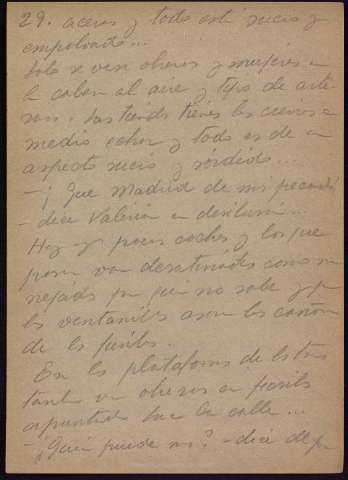 29. aceras y todo está sucio y
empolvado...
Solo se ven obreros y mujeres a
la cabeza al aire y tipos de arte
sanos. Las tiendas tienen los cierres a
medio echar y todo es de un
aspecto sucio y sórdido...
- ¡Que Madrid de mis pecados!
- dice Valeria en desilusión...
Hay ya pocos coches y los que
pasan van desatinados como ma
nejados por quien no sabe y por
las ventanillas asoman los cañones
de los fusiles.
En las plataformas de los tran
vías van obreros con fusiles
apuntando hacia la calle...
- ¿Quién puede ser? - dice